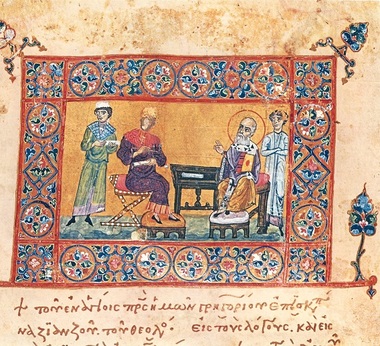 + τοῦ ἐν ἁγίοις πρς ἡμῶν γρηγορίου ἐπισκπ
ναζιανζοῦ τοῦ θεολό· Εἰς τοὺς λόγους, καὶ εἰς